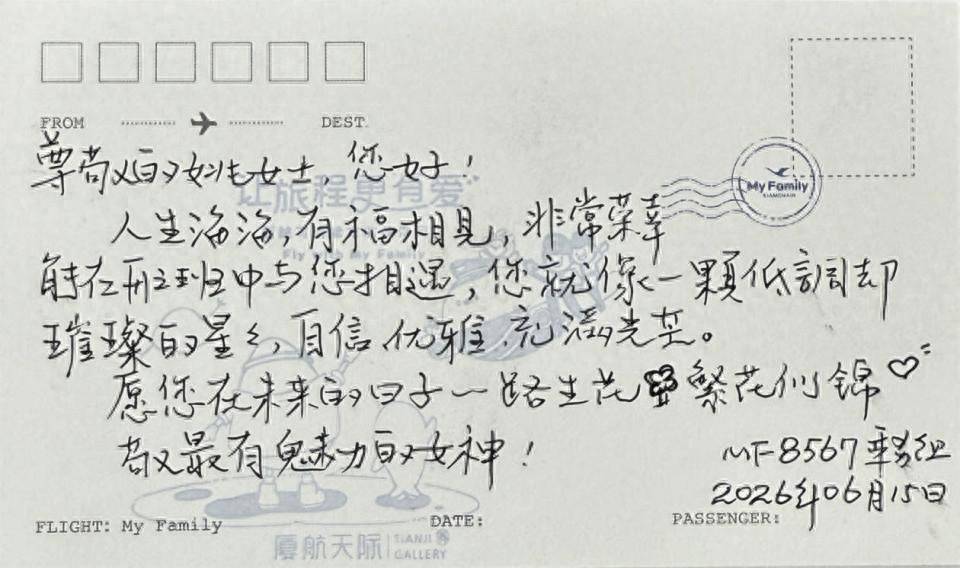 FROM DEST.
尊敬的女士,您好!
让旅程更有爱
My Family
XIAMENAIR
人生海海,有福相见,非常荣幸
Fly with My Family
能在航班中与您相遇,您就像一颗低调却
璀璨的星々,自信、优雅、充满光芒。
愿您在未来的日子一路生花 繁花似锦
敬最有魅力的女神!
MF8567乘务组
2026年06月15日
FLIGHT: My Family DATE: PASSENGER:
厦航天际 TIANJI GALLERY